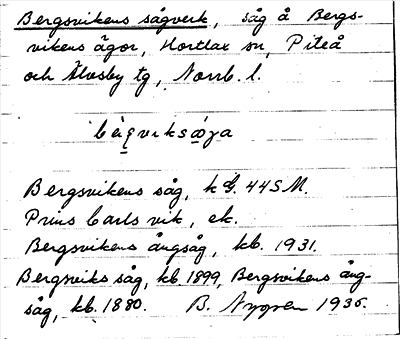 Bergsvikens sågverk, såg å Bergs-
vikens ägor, Hortlax sn, Piteå
och Älvsby tg, Norrb. l.
Bergsvikens såg, 44SM.
Prins Carls vik, ek.
Bergsvikens ångsåg, kb. 1931.
Bergsviks såg, kb 1899, Bergsvikens ång-
såg, kb. 1880. B. Nygren 1935.